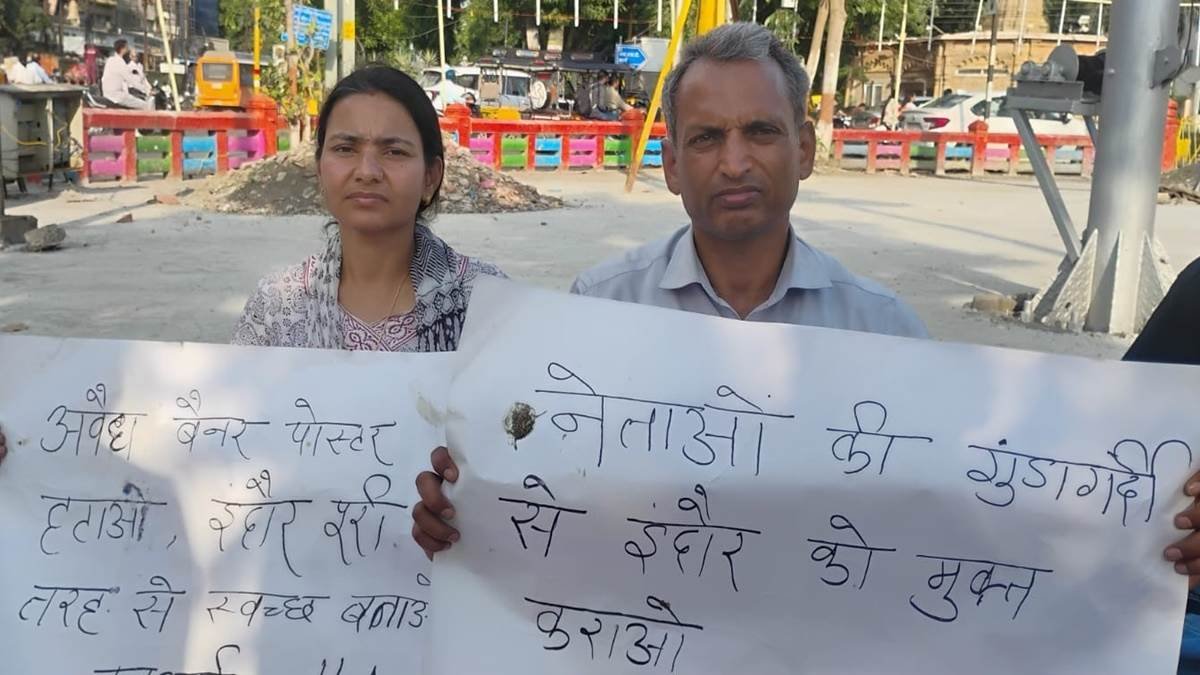 अवैध बैनर पोस्टर
हटाओ, इंदौर पूरी
तरह से स्वच्छ बनाओ
नेताओं की गुंडागर्दी
से इंदौर को मुक्त
कराओ